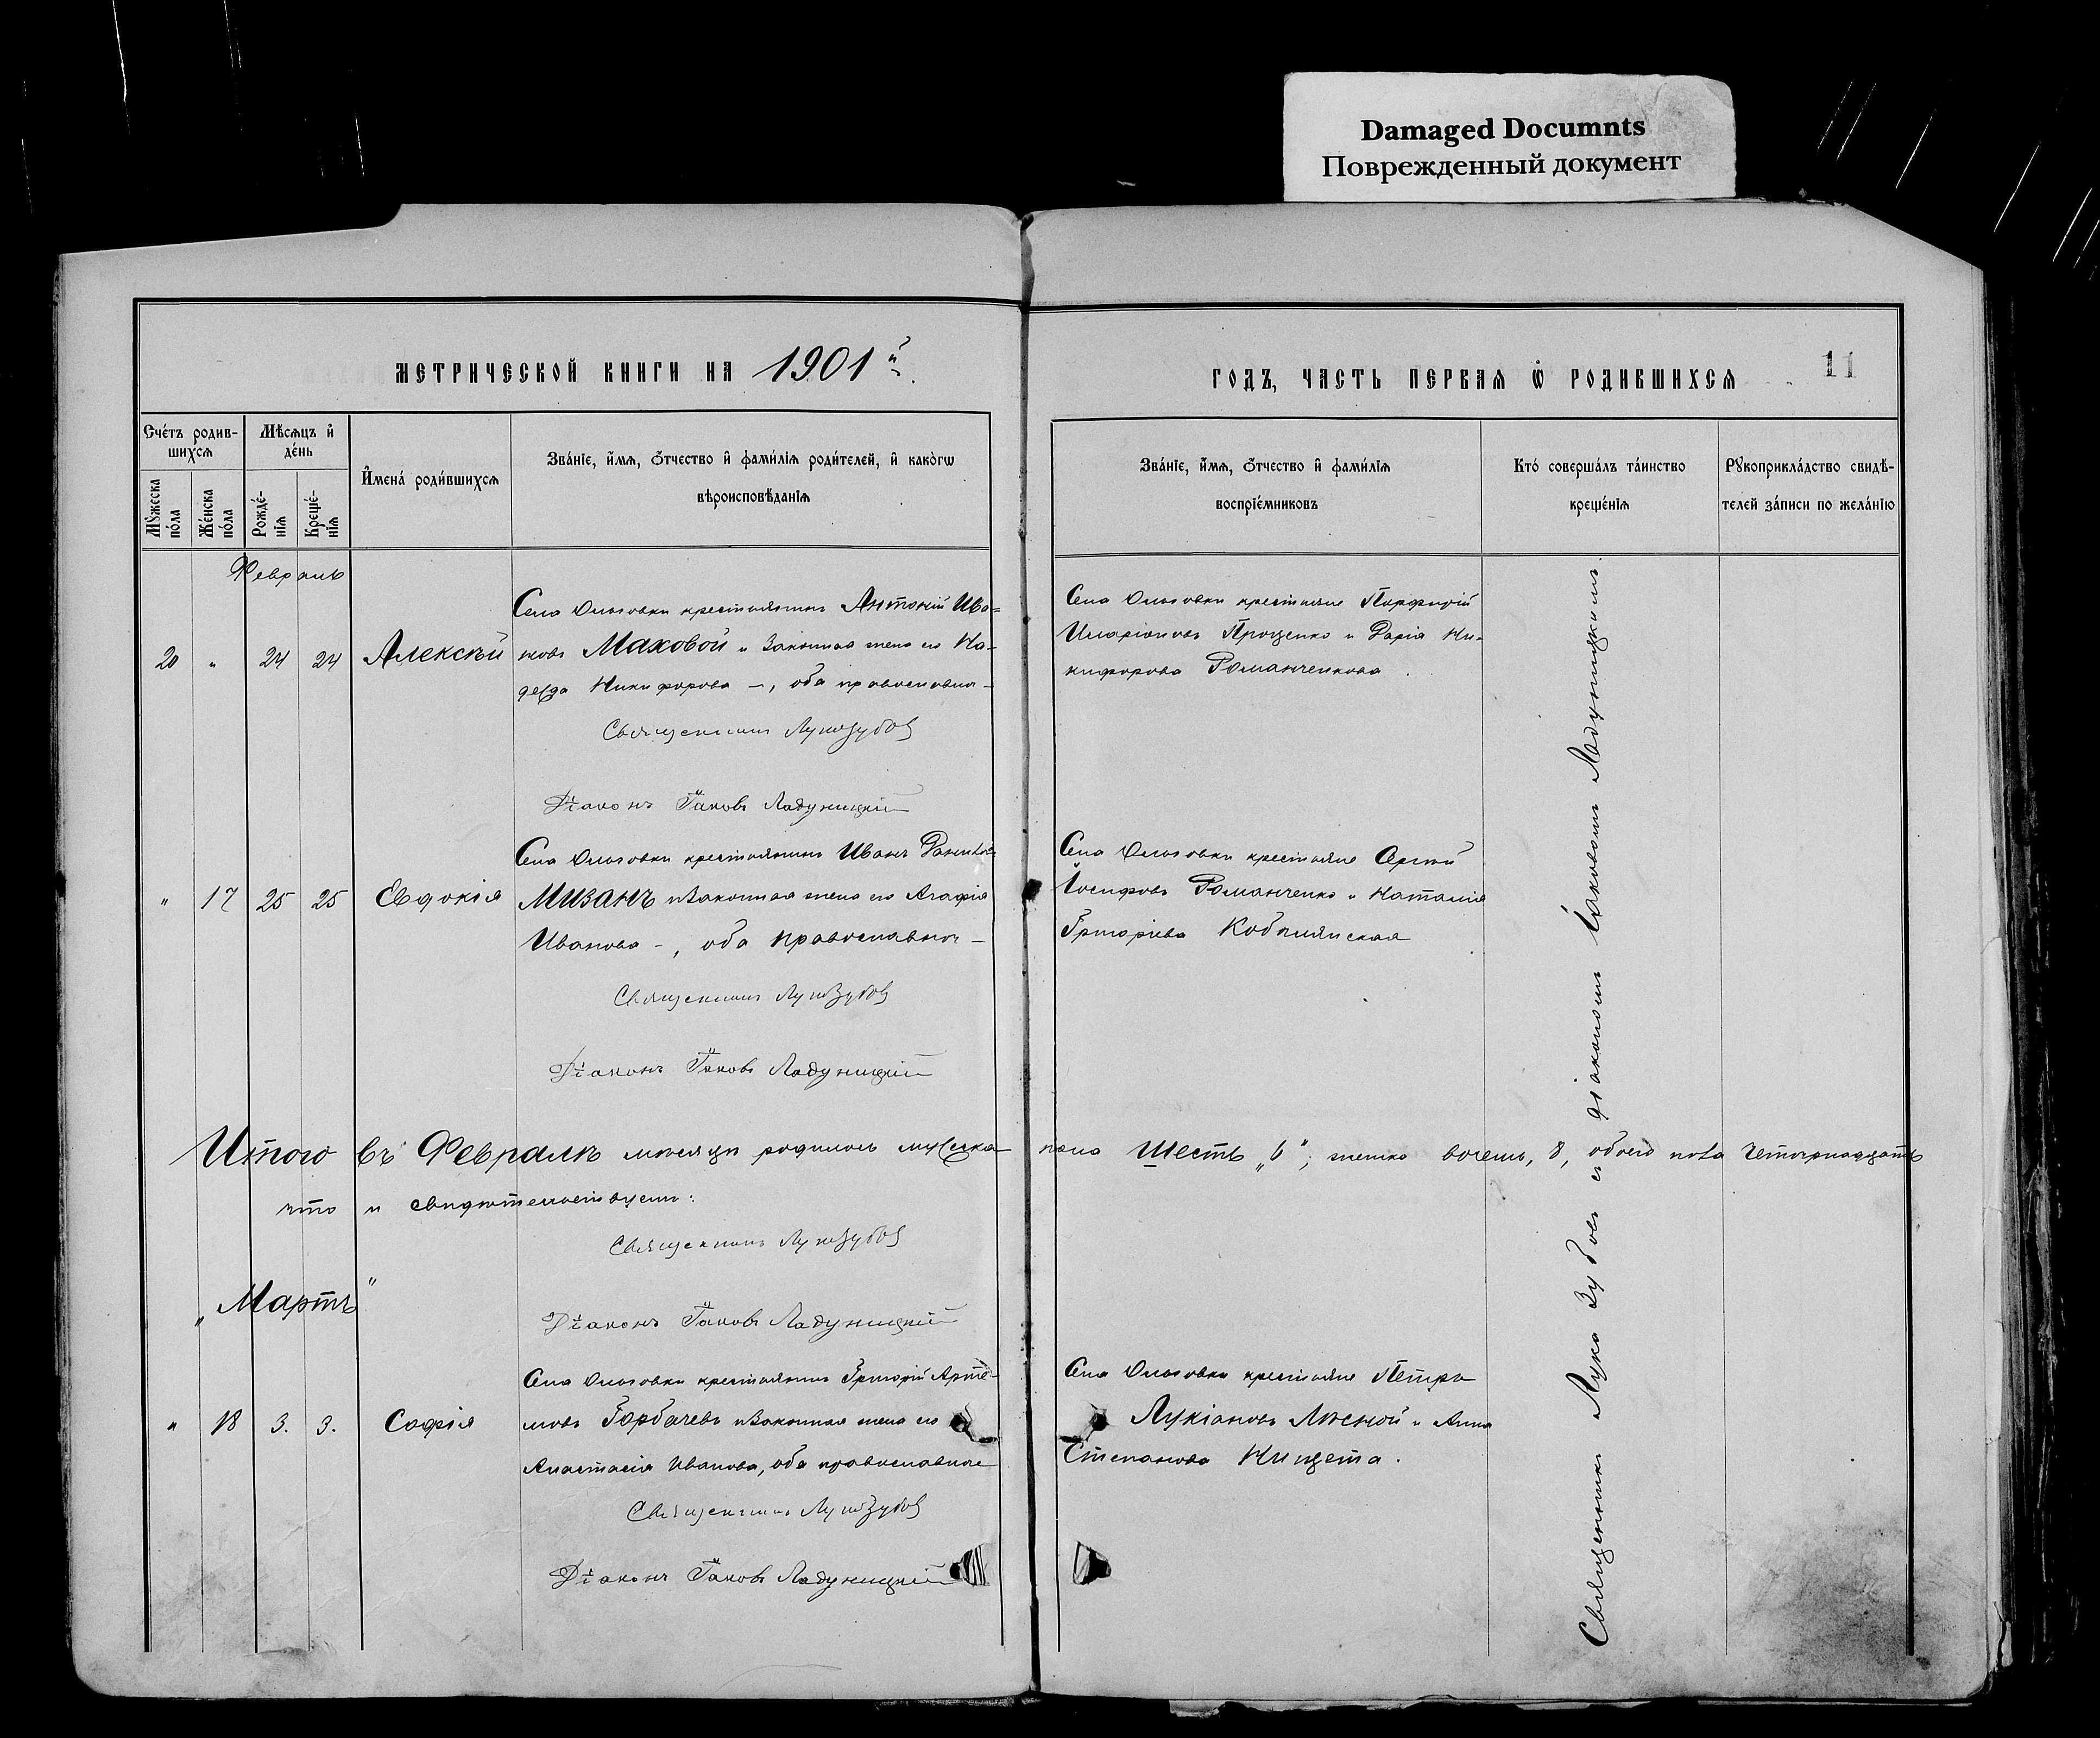 Damaged Documnts
Поврежденный документ
МЕТРИЧЕСКОЙ КНИГИ НА 1901й
ГОДЪ, ЧАСТЬ ПЕРВАЯ Ѡ РОДИВШИХСЯ
11
Счетъ родив-
шихся
Мѣсяцъ и
день
Мужеска
пола
Женска
пола
Рожде-
нія
Креще-
нія
Имена родившихся
Званіе, имя, отчество и фамилія родителей, и какогѡ
вѣроисповѣданія
Званіе, имя, отчество и фамилія
воспріемниковъ
Кто совершалъ таинство
крещенія
Рукоприкладство свидѣ-
телей записи по желанію
Февраль
20 " 24 24 Алексѣй
Села Ольговки крестьянинъ Антоній Ива=
новъ Маховой и законная жена его На-
дежда Никифорова –, оба православные
Священникъ Лука Зубовъ
Діаконъ Іаковъ Ладуницкій
Села Ольговки крестьяне Порфирій
Иларіоновъ Проценко и Дарія Ни-
кифорова Романченкова
" 17 25 25 Евдокія
Села Ольговки крестьянинъ Иванъ
Мизанъ и законная жена его Агафія
Иванова –, оба православные
Священникъ Лука Зубовъ
Діаконъ Іаковъ Ладуницкій
Села Ольговки крестьяне Сергѣй
Іосифовъ Романченко и Наталія
Григоріева Кобылянская
Итого въ Февралѣ мѣсяцѣ родилось мужеска пола Шесть „6"; женска восемь, 8, обоего пола четырнадцать
что и свидѣтельствуемъ:
Священникъ Лука Зубовъ
Діаконъ Іаковъ Ладуницкій
„Мартъ"
" 18 3. 3. Софія
Села Ольговки крестьянинъ Григорій Арте-
мовъ Горбачевъ и законная жена его
Анастасія Иванова, оба православные
Священникъ Лука Зубовъ
Діаконъ Іаковъ Ладуницкій
Села Ольговки крестьяне Петръ
Лукіановъ Лѣсной и Анна
Степанова Нищета.
Священникъ Лука Зубовъ съ діакономъ Іаковомъ Ладуницкимъ.